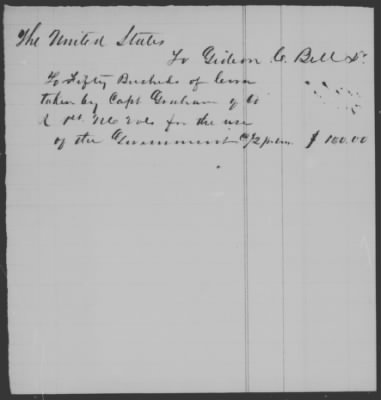 The United States
To Gideon C. Bell Dr
To Fifty Bushels of Corn
taken by Capt Graham of Co
L 1st NC Vols for the use
of the Government @ $2 pr bu $100.00